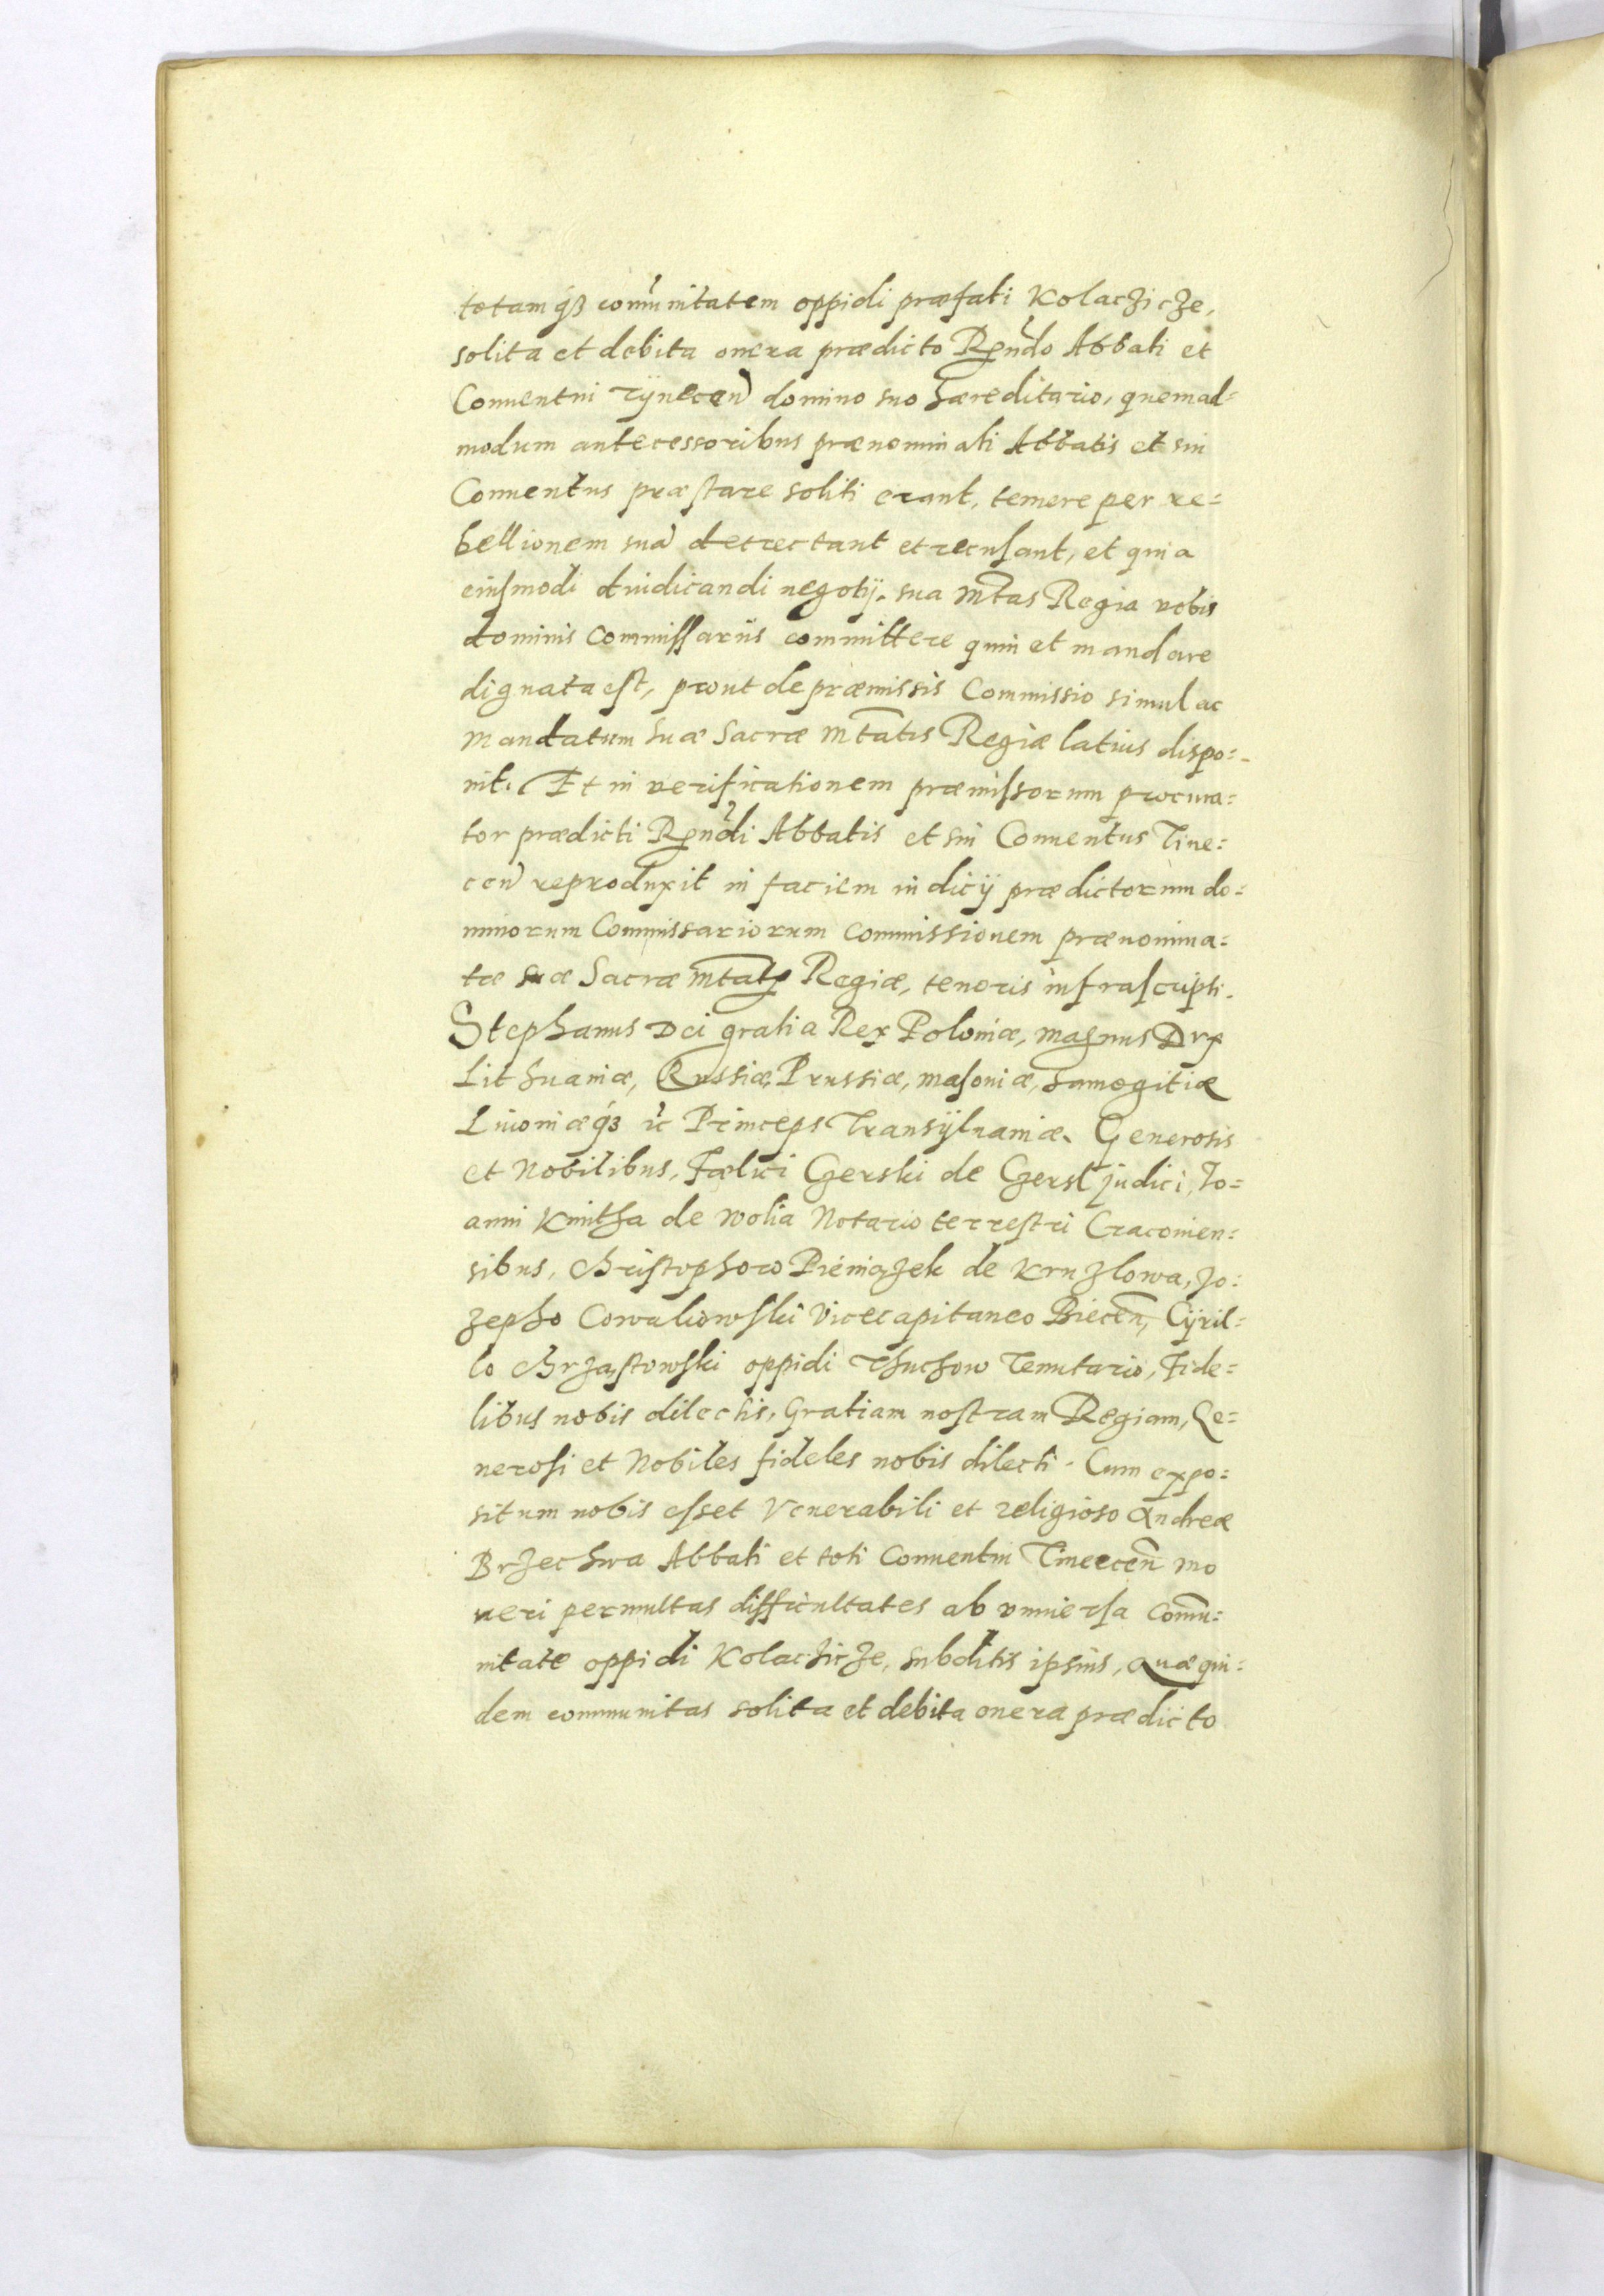 totamq́ꝫ com̃unitatem oppidi præfati Kolaczicze,
solita et debita onera prædicto Rꝑñdo Abbati et
Conuentui Tÿnecen̄ domino suo hæreditario, quemad=
modum antecessoribus prænominati Abbatis et sui
Conuentus præstare soliti erant, temere per re=
bellionem suā detrectant et recusant, et quia
eiusmodi diiudicandi negotij. sua Mt̄as Regia vobis
dominis Commissariis committere quin et mandare
dignata est, prout de præmissis Commissio simul ac
Mandatum Suæ Sacræ Mt̄atis Regiæ latius dispo=
nit. Et in verificationem præmissorum procura=
tor prædicti Rꝑñdi Abbatis et sui Conuentus Tine=
cen̄ reproduxit in faciem iudicij prædictorum do=
minorum Commissariorum Commissionem prænomina=
tæ suæ Sacræ Mt̄atꝭ Regiæ, tenoris infrascripti.
Stephanus Dei gratia Rex Poloniæ, Magnus Dux
Lithuaniæ, Russiæ, Prussiæ, Masoniæ, Samogitiæ
Liuoniæq́ꝫ ꝛc̃ Princeps Transÿluaniæ. Generosis
et Nobilibus, Fælici Czerski de Czersl judici, Jo=
anni Kmitha de Wolia Notario terrestri Cracouien=
sibus, Christophoro Pieniążek de Kruzlowa, Jo=
zepho Cowaliowski Vicecapitaneo Biecen̄, Cÿril=
lo Chrząstowski oppidi Thuchow Tenutario, Fide=
libus nobis dilectis, Gratiam nostram Regiam, Ge=
nerosi et Nobiles fideles nobis dilecti. Cum expo=
situm nobis esset Venerabili et religioso Andreæ
Brzechwa Abbati et toti Conuentui Tineecen̄ mo
ueri permultas difficultates ab vniuersa Com̄u=
nitate oppidi Kolaczicze, subditis ipsius, Quæ qui=
dem communitas solita et debita onera prædicto